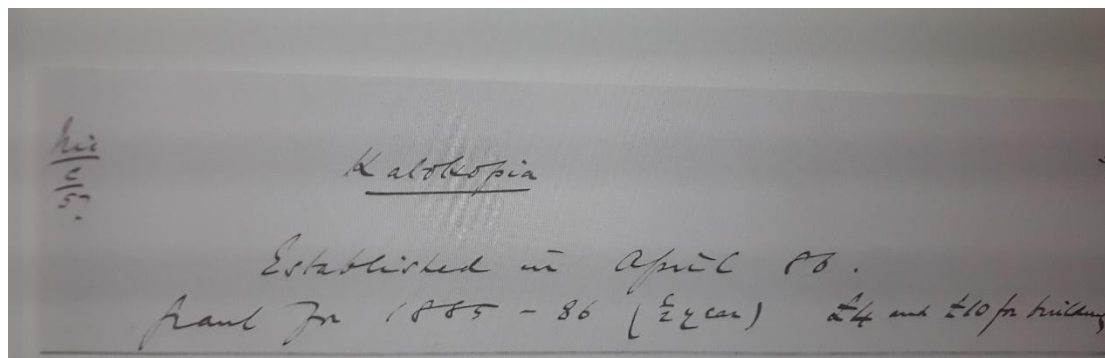 Nic
C
5?
Kalokopia
Established in April 86.
Grant for 1885 - 86 (½ year) £4 and £10 for building